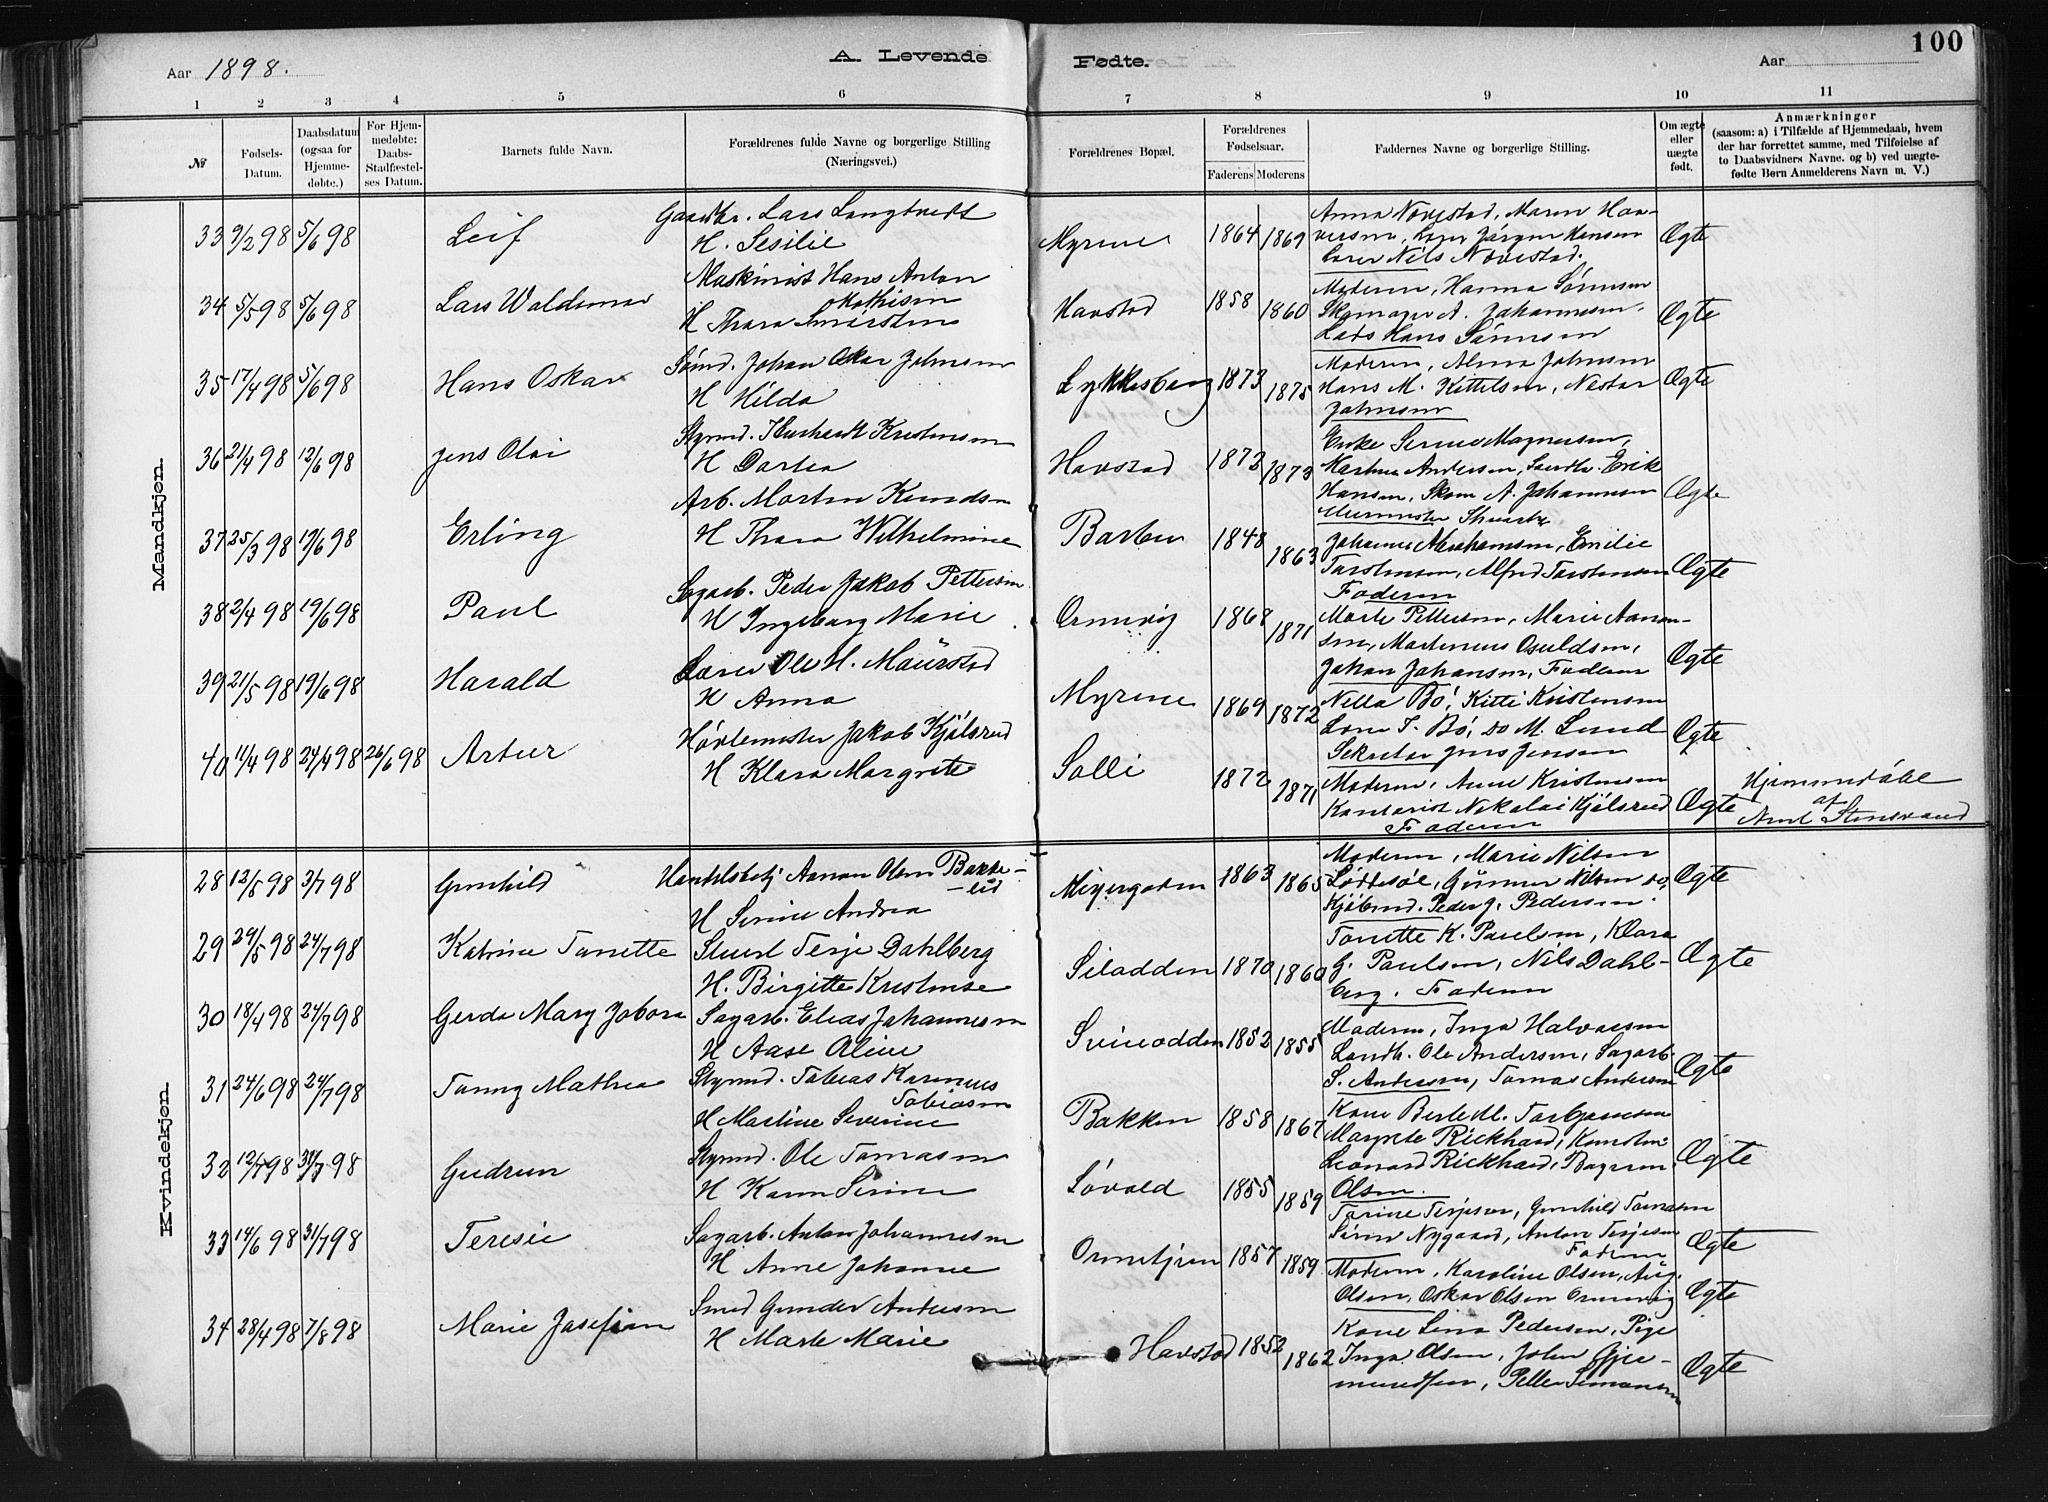 Aar 1898.
A. Levende
Fødte.
Aar
100
1 2 3 4 5 6 7 8 9 10 11
№
Fødsels-
Datum.
Daabsdatum
(ogsaa for
Hjemme-
døbte.)
For Hjem-
medøbte:
Daabs-
Stadfæstel-
ses Datum.
Barnets fulde Navn.
Forældrenes fulde Navne og borgerlige Stilling
(Næringsvei.)
Forældrenes Bopæl.
Forældrenes
Fødselsaar.
Faderens Moderens
Faddernes Navne og borgerlige Stilling.
Om ægte
eller
uægte
født.
Anmærkninger
(saasom: a) i Tilfælde af Hjemmedaab, hvem
der har forrettet samme, med Tilføielse af
to Daabsvidners Navne. og b) ved uægte-
fødte Børn Anmelderens Navn m. V.)
Mandkjøn.
33 9/2 98 5/6 98 Leif
Gaardbr. Lars Langtvedt
H. Sesilie
Myrene 1864 1869
Anna Novestad, Maren Hav-
versen, Jørgen Hansen
Nils Novestad.
Ægte
34 5/5 98 5/6 98 Lars Waldemar
Maskinist Hans Anton
Mathisen
H Thara
Havstad 1858 1860
Moderen, Hanna Sørensen
Skomager A. Johannesen,
Lods Hans Sørensen
Ægte
35 17/4 98 5/6 98 Hans Oskar
Sømd. Johan Oskar Johnsen
H Hilda
Lykkesborg 1873 1875
Moderen, Alma Johnsen
Hans M. Kittelsen, Nestor
Johnsen
Ægte
36 21/4 98 12/6 98 Jens Olai
Styrmd. Kristensen
H Dortea
Havstad 1872 1873
Enke Serine Magnussen,
Martine Andersen, Erik
Hansen, Skom A. Johannesen
Ægte
37 25/3 98 19/6 98 Erling
Arb. Morten Knudsen
H Thara Wilhelmine
Barbu 1848 1863
Johanne Abrahamsen, Emilie
Torstensen, Alfred Torstensen
Faderen
Ægte
38 2/4 98 19/6 98 Paul
Sagarb. Peder Jakob Pettersen
H Ingeborg Marie
Ormevig 1868 1871
Marte Pettersen, Marie Aanon-
sen, Martenius Osuldsen,
Johan Johansen, Faderen
Ægte
39 21/5 98 19/6 98 Harald
Ole H. Maurstad
H Anna
Myrene 1869 1872
Nilla Bø, Kitti Kristensen
J. Bø, do M. Lund
Sekretær Jens Jensen
Ægte
40 11/4 98 24/4 98 26/6 98 Artur
Høvlemester Jakob Kjølsrud
H Klara Margrete
Solli 1872 1871
Moderen, Anne Kristensen
Kontorist Nikolai Kjølsrud
Faderen
Ægte
Hjemmedøbt
af
Kvindekjøn.
28 12/5 98 3/7 98 Gunhild
Handelsbetj Aanon Olsen Bakke-
lid
H Serine Andrea
Meyergaden 1863 1865
Moderen, Marie Nilsen
Løddesøl, Gunner Nilsen do,
Kjøbmd. Peder J. Pedersen.
Ægte
29 29/5 98 24/7 98 Katrine Tonette
Stuert Terje Dahlberg
H. Birgitte Kristense
Siladden 1870 1860
Tonette K. Paulsen, Klara
G. Paulsen, Nils Dahl-
berg. Faderen
Ægte
30 18/4 98 24/7 98 Gerda Mary Jobora
Sagarb. Elias Johannesen
H Aase Oline
Svineodden 1852 1855
Moderen, Inga Halvorsen
Landh. Ole Andersen, Sagarb.
S. Andersen, Tomas Andersen
Ægte
31 24/6 98 24/7 98 Tanny Mathea
Styrmd. Tobias Karenius
Tobiasen
H Martine Severine
Bakken 1858 1867
Kone Torbjørnsen
Margrete Rickhard,
Leonard Rickhard,
Olsen.
Ægte
32 12/7 98 31/7 98 Gudrun
Styrmd. Ole Tomasen
H Karen Serine
Løvold 1855 1859
Torine Terjesen, Gunhild Tomasen
Søren Nygaard, Anton Terjesen
Faderen
Ægte
33 14/6 98 31/7 98 Teresie
Sagarb. Anton Johannesen
H Anne Johanne
Ormetjen 1857 1859
Moderen, Karoline Olsen, Aug.
Olsen, Oskar Olsen Ormevig
Ægte
34 28/4 98 7/8 98 Marie Josefine
Smed Gunder Andersen
H Marte Marie
Havstad 1852 1862
Kone Lina Pedersen, Pige
Inga Olsen, John Gjer-
mundsen, Peller Simonsen
Ægte